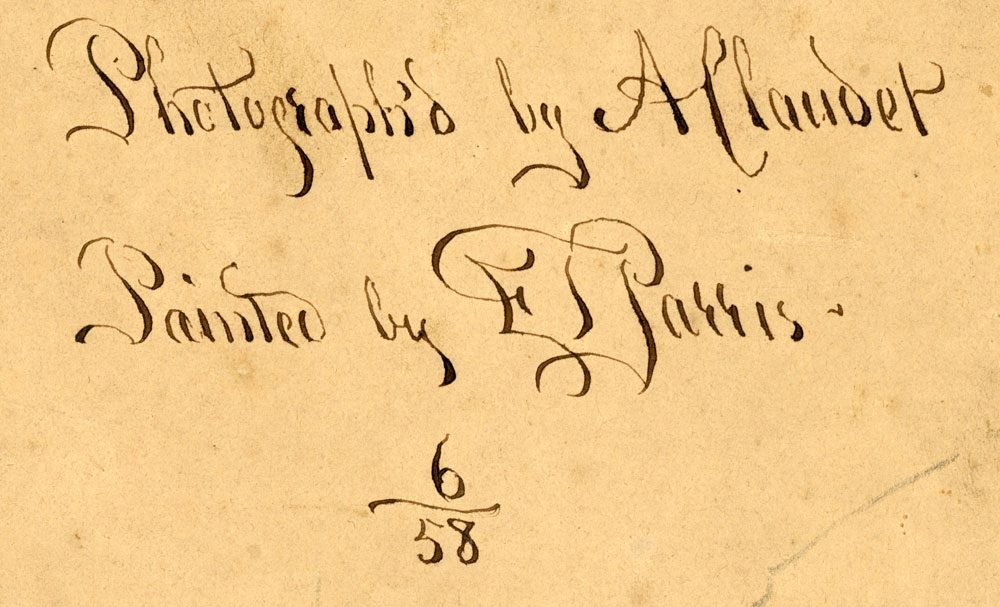 Photograph'd by A Claudet
Painted by E T Parris.
6
58